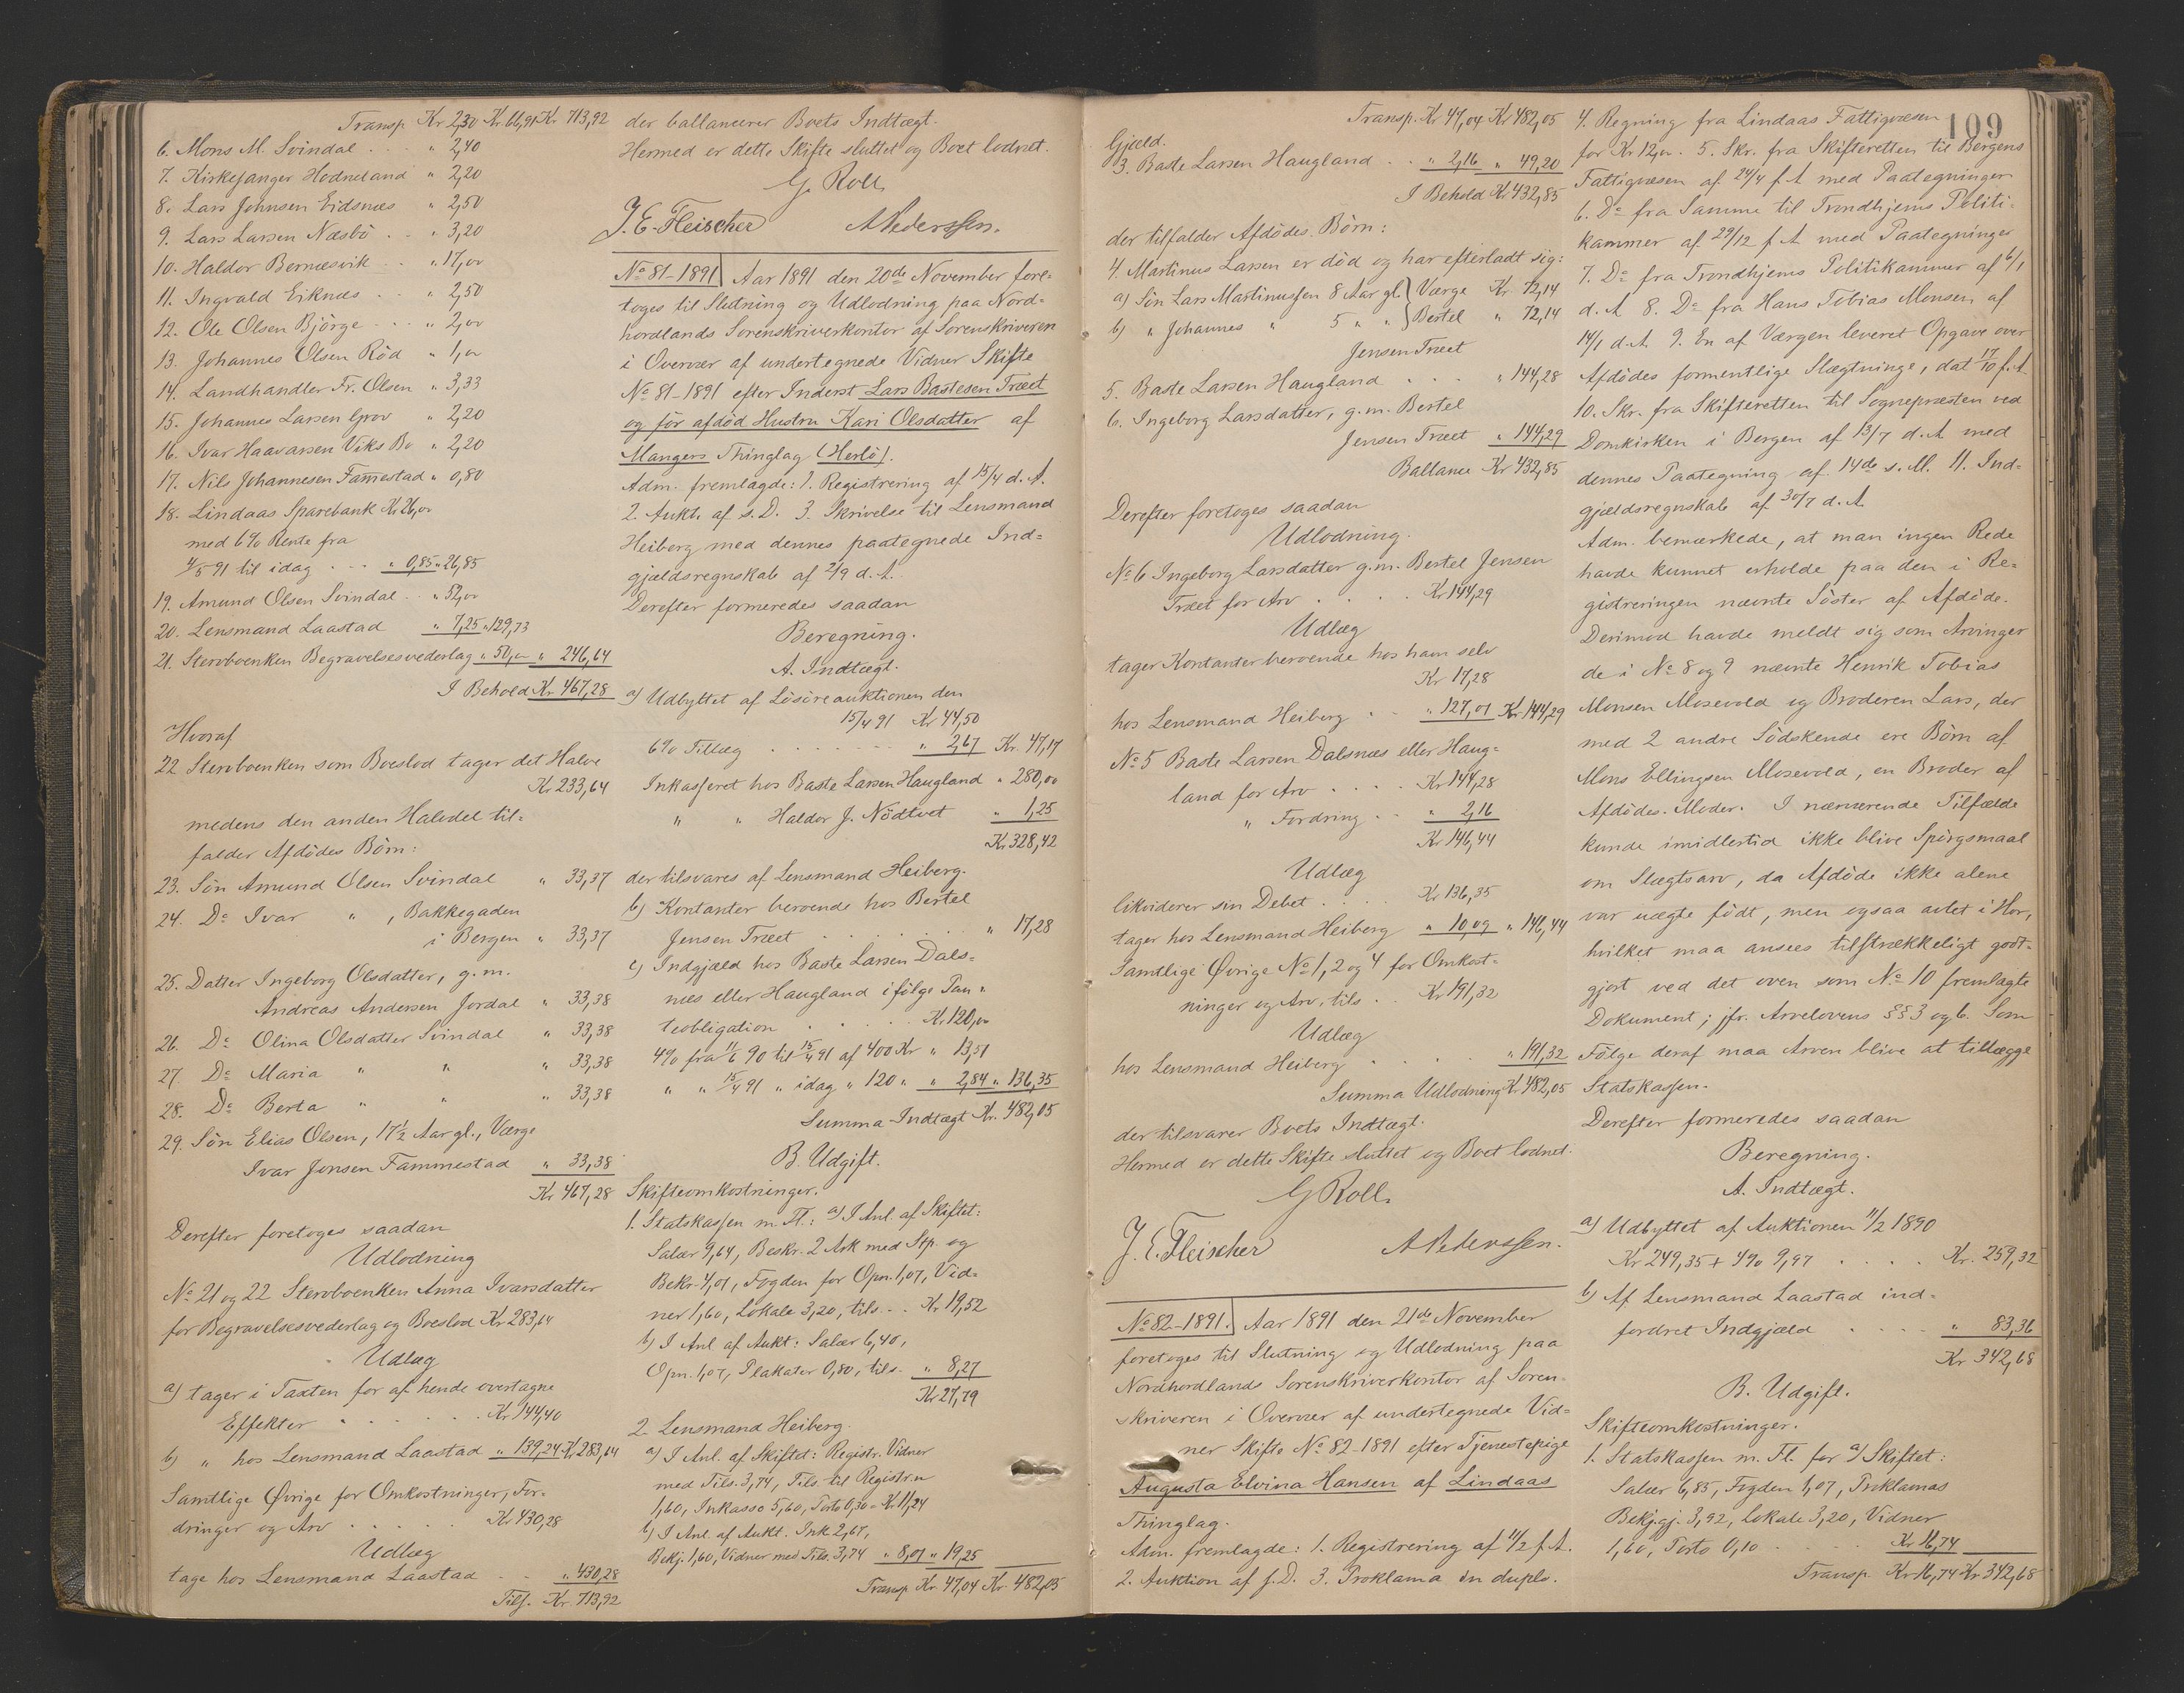 Transp. Kr 2,30 Kr. 66,91 Kr 713,92
6. Mons M. Svindal . . . " 2,40
7. Kirkesanger Hodneland " 2,20
8. Lars Johnsen Eidsnæs " 2,50
9. Lars Larsen Næsbö . . " 3,20
10. Haldor Bernæsvik . . " 17,00
11. Ingvald Eiknæs . . . " 2,50
12. Ole Olsen Bjørge . . . " 2,00
13. Johannes Olsen Röd " 1,00
14. Landhandler Fr. Olsen " 3,33
15. Johannes Larsen Grov " 2,20
16. Ivar Haavarsen Viks Bo " 2,20
17. Nils Johannesen Fammestad " 0,80
18. Lindaas Sparebank Kr. 26,00
med 6% Rente fra
4/5 91 til idag . . . " 0,85 " 26,85
19. Amund Olsen Svindal . . " 52,00
20. Lensmand Laastad " 7,25 " 129,73
21. Stervboenken Begravelsesvederlag " 50,00 " 246,64
I Behold Kr 467,28
Hvoraf
22 Stervboenken som Boeslod tager det Halve
Kr. 233,64
medens den anden Halvdel til-
falder Afdödes Börn:
23. Sön Amund Olsen Svindal " 33,37
24. Do Ivar " , Bakkegaden
i Bergen " 33,37
25. Datter Ingeborg Olsdatter, g. m.
Andreas Andersen Jordal " 33,38
26. Do Olina Olsdatter Svindal " 33,38
27. Do Maria " " " 33,38
28. Do Berta " " " 33,38
29. Sön Elias Olsen, 17 1/2 Aar gl., Værge
Ivar Jonsen Fammestad " 33,38
Kr. 467,28
Derefter foretoges saadan
Udlodning
No 21 og 22 Stervboenken Anna Ivarsdatter
for Begravelsesvederlag og Boeslod Kr 283,64
Udlæg
a) tager i Taxten for af hende overtagne
Effekter . . . . . Kr 144,40
b) " hos Lensmand Laastad " 139,24 Kr 283,64
Samtlige Øvrige for Omkostninger, For-
dringer og Arv . . . . . Kr 430,28
Udlæg
tage hos Lensmand Laastad . . " 430,28
Tils. Kr. 713,92
der ballancerer Boets Indtægt.
Hermed er dette Skifte sluttet og Boet lodnet.
G. Roll
J. E. Fleischer A Pederssen.
No 81-1891 Aar 1891 den 20de November fore-
toges til Slutning og Udlodning paa Nord-
hordlands Sorenskriverkontor af Sorenskriveren
i Overvær af undertegnede Vidner Skifte
No 81-1891 efter Inderst Lars Bastesen Træet
og för afdöd Hustru Kari Olsdatter af
Mangers Thinglag (Herlö).
Adm. fremlagde: 1. Registrering af 15/4 d. A.
2. Aukt. af s. D. 3. Skrivelse til Lensmand
Heiberg med dennes paategnede Ind-
gjældsregnskab af 2/9 d. A.
Derefter formeredes saadan
Beregning.
A. Indtægt.
a) Udbyttet af Lösöreauktionen den
15/4 91 Kr 44,50
6% Tillæg . . . . . . . " 2,67 Kr. 47,17
Inkasseret hos Baste Larsen Haugland " 280,00
" " Haldor J. Nödtvet " 1,25
Kr 328,42
der tilsvares af Lensmand Heiberg.
b) Kontanter beroende hos Bertel
Jensen Træet . . . . . . . " 17,28
c) Indgjæld hos Baste Larsen Dals-
næs eller Haugland ifölge Pan-
teobligation . . . . . Kr. 120,00
4% fra 11/6 90 til 15/4 91 af 400 Kr " 13,51
" " 15/4 91 " idag " 120 " " 2,84 " 136,35
Summa Indtægt Kr. 482,05
B. Udgift.
Skifteomkostninger.
1. Statskassen m. Fl.: a) I Anl. af Skiftet:
Salær 9,64, Beskr. 2 Ark med Stp. og
Bekr. 4,01, Fogden for Opn. 1,07, Vid-
ner 1,60, Lokale 3,20, tils. . . Kr. 19,52
b) I Anl af Aukt: Salær 6,40,
Opn. 1,07, Plakater 0,80, tils. " 8,27
Kr 27,79
2. Lensmand Heiberg.
a) I Anl. af Skiftet: Registr. Vidner
med Tils. 3,74, Tils. til Registr.n
1,60, Inkasso 5,60, Porto 0,30 = Kr. 11,24
b) I Anl. af Aukt. Ink 2,67,
Bekj. 1,60, Vidner med Tils. 3,74 " 8,01 " 19,25
Transp. Kr. 47,04 Kr. 482,05
109
Transp. Kr 47,04 Kr 482,05
Gjæld.
3. Baste Larsen Haugland . . " 2,16 " 49,20
I Behold Kr 432,85
der tilfalder Afdödes Börn:
4. Martinus Larsen er död og har efterladt sig:
a) Sön Lars Martinussen 8 Aar gl. Værge Kr. 72,14
b) " Johannes " 5 " " Bertel " 72,14
Jensen Træet
5. Baste Larsen Haugland . . . " 144,28
6. Ingeborg Larsdatter, g. m. Bertel
Jensen Træet " 144,29
Ballance Kr 432,85
Derefter foretoges saadan
Udlodning.
No 6 Ingeborg Larsdatter g. m. Bertel Jensen
Træet for Arv . . . . Kr 144,29
Udlæg
tager Kontanter beroende hos ham selv
Kr 17,28
hos Lensmand Heiberg . . " 127,01 Kr 144,29
No 5 Baste Larsen Dalsnæs eller Haug-
land for Arv . . . . Kr 144,28
" Fordring . . " 2,16
Kr 146,44
Udlæg
likviderer sin Debet . . . . Kr 136,35
tager hos Lensmand Heiberg " 10,09 " 146,44
Samtlige Øvrige No 1, 2 og 4 for Omkost-
ninger og Arv, tils . . Kr 191,32
Udlæg
hos Lensmand Heiberg . . . . " 191,32
Summa Udlodning Kr 482,05
der tilsvarer Boets Indtægt.
Hermed er dette Skifte sluttet og Boet lodnet.
G Roll.
J. E. Fleischer A Pederssen.
No 82-1891. Aar 1891 den 21de November
foretoges til Slutning og Udlodning paa
Nordhordlands Sorenskriverkontor af Soren-
skriveren i Overvær af undertegnede Vid-
ner Skifte No 82-1891 efter Tjenestepige
Augusta Elvina Hansen af Lindaas
Thinglag.
Adm. fremlagde: 1. Registrering af 11/2 f. A.
2. Auktion af s. D. 3. Proklama in duplo.
4. Regning fra Lindaas Fattigvæsen
for Kr 12,00. 5. Skr. fra Skifteretten til Bergens
Fattigvæsen af 24/4 f. A. med Paategninger
6. Do fra Samme til Trondhjems Politi-
kammer af 29/12 f. A. med Paategninger
7. Do fra Trondhjems Politikammer af 6/1
d. A. 8. Do fra Hans Tobias Monsen af
14/1 d. A. 9. En af Værgen leveret Opgave over
Afdödes formentlige Slægtninge, dat 17/10 f. A.
10. Skr. fra Skifteretten til Sognepræsten ved
Domkirken i Bergen af 13/7 d. A. med
dennes Paategning af 14de s. M. 11. Ind-
gjældsregnskab af 30/7 d. A.
Adm. bemærkede, at man ingen Rede
havde kunnet erholde paa den i Re-
gistreringen nævnte Söster af Afdöde.
Derimod havde meldt sig som Arvinger
de i No 8 og 9 nævnte Henrik Tobias
Monsen Mosevold og Broderen Lars, der
med 2 andre Södskende ere Börn af
Mons Ellingsen Mosevold, en Broder af
Afdödes Moder. I nærværende Tilfælde
kunde imidlertid ikke blive Spörgsmaal
om Slægtsarv, da Afdöde ikke alene
var uægte födt, men ogsaa avlet i Hor,
hvilket maa ansees tilstrækkeligt godt-
gjort ved det oven som No 10 fremlagte
Dokument; jfr. Arvelovens §§ 3 og 6. Som
Fölge deraf maa Arven blive at tillægge
Statskassen.
Derefter formeredes saadan
Beregning.
A. Indtægt.
a) Udbyttet af Auktionen 11/2 1890
Kr 249,35 + 4% 9,97 . . . . Kr. 259,32
b) Af Lensmand Laastad ind-
fordret Indgjæld . . . . " 83,36
Kr 342,68
B. Udgift.
Skifteomkostninger.
1. Statskassen m. Fl. for a) Skiftet:
Salær 6,85, Fogden 1,07, Proklamas
Bekj.gj. 3,92, Lokale 3,20, Vidner
1,60, Porto 0,10 . . . . Kr 16,74
Transp. Kr 16,74 Kr 342,68